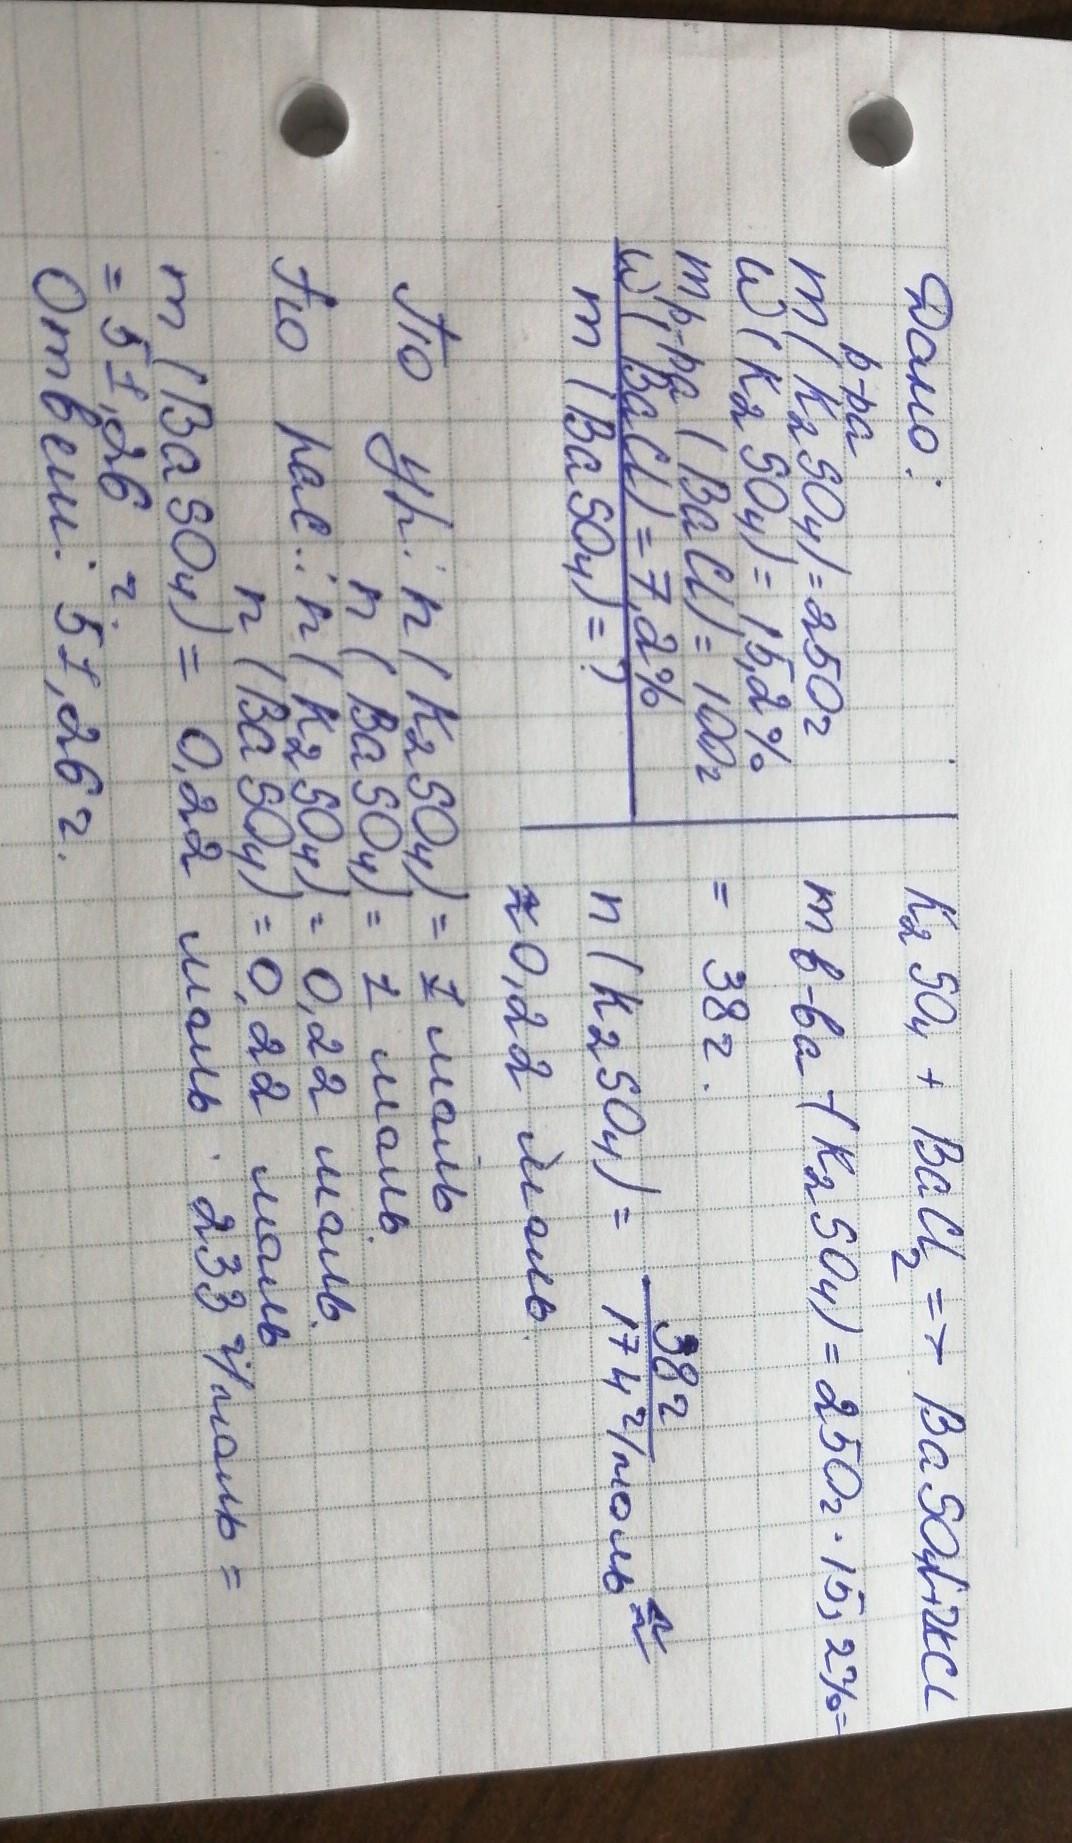 Дано:
р-ра
m(K₂SO₄)=250г
W(K₂SO₄)=15,2%
m р-ра (BaCl)=100г
W(BaCl)=7,2%
m(BaSO₄)=?
K₂SO₄ + BaCl₂ => BaSO₄↓+2KCl
m в-ва (K₂SO₄)=250г·15,2%=
= 38г.
n(K₂SO₄) = 38г / 174г/моль ≈
≈0,22 моль.
По ур.: n(K₂SO₄) = 1 моль
n(BaSO₄) = 1 моль.
По рас.: n(K₂SO₄) = 0,22 моль.
n(BaSO₄) = 0,22 моль
m(BaSO₄) = 0,22 моль · 233 г/моль =
= 51,26 г.
Ответ: 51,26г.